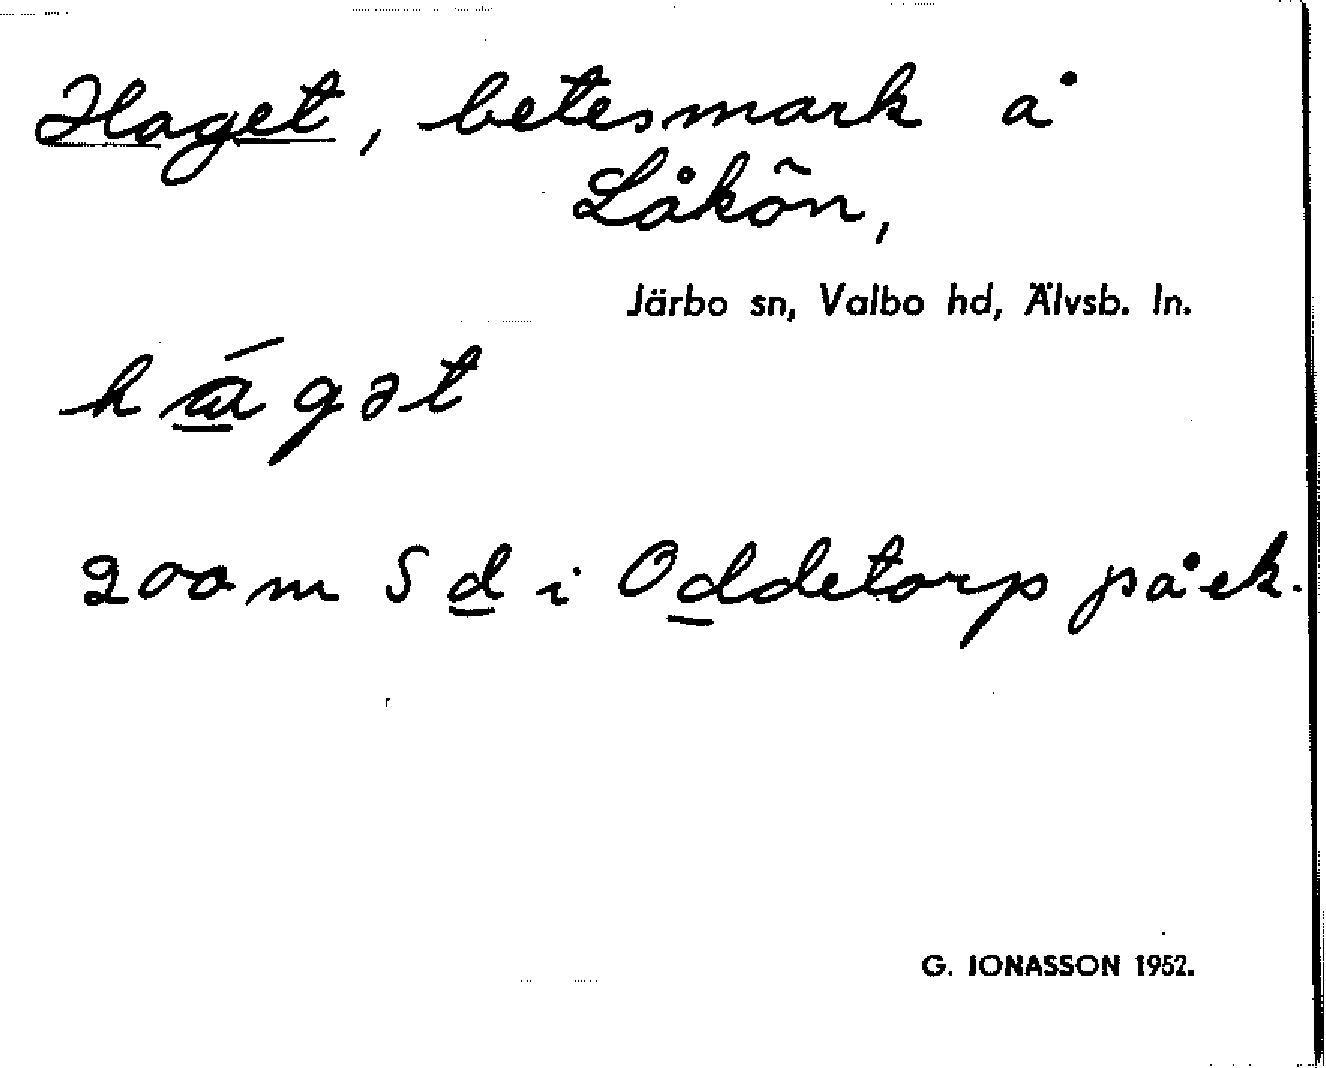 Haget, betesmark å
Låkön,
Järbo sn, Valbo hd, Älvsb. ln.
hágət
200 m S d i Oddetorp på ek.
G. JONASSON 1952.